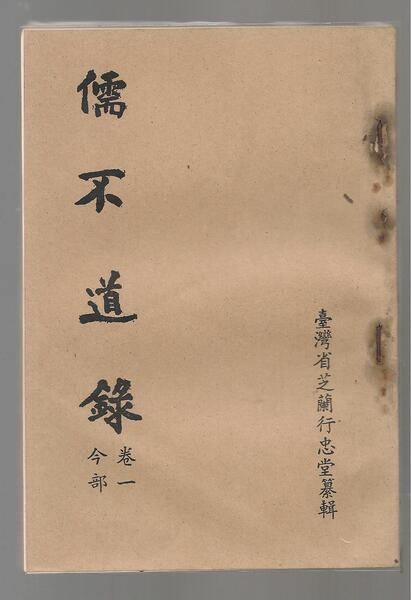 臺灣省芝蘭行忠堂纂輯
儒不道錄
卷一
今部